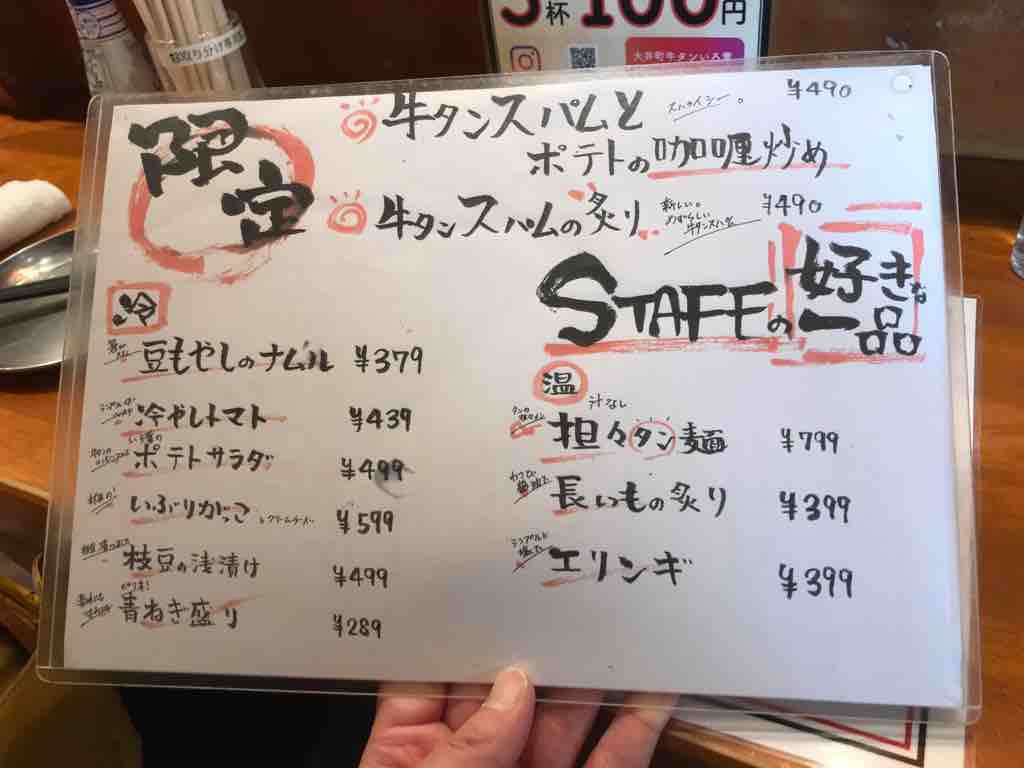 杯100円
大井町牛タンいろ葉
取り分け専用
限定
牛タンスパムと
ポテトの咖喱炒め
スパイシー。
¥490
牛タンスパムの炙り
新しい。
めずらしい
牛タンスパム
¥490
STAFFの好きな一品
冷
豆もやしのナムル ¥379
冷やしトマト ¥439
ポテトサラダ ¥499
いぶりがっこ とクリームチーズ ¥599
枝豆の浅漬け ¥499
ピリ辛!
青ねぎ盛り ¥289
温
汁なし
担々タン麺 ¥799
長いもの炙り ¥399
シンプルに
塩で
エリンギ ¥399